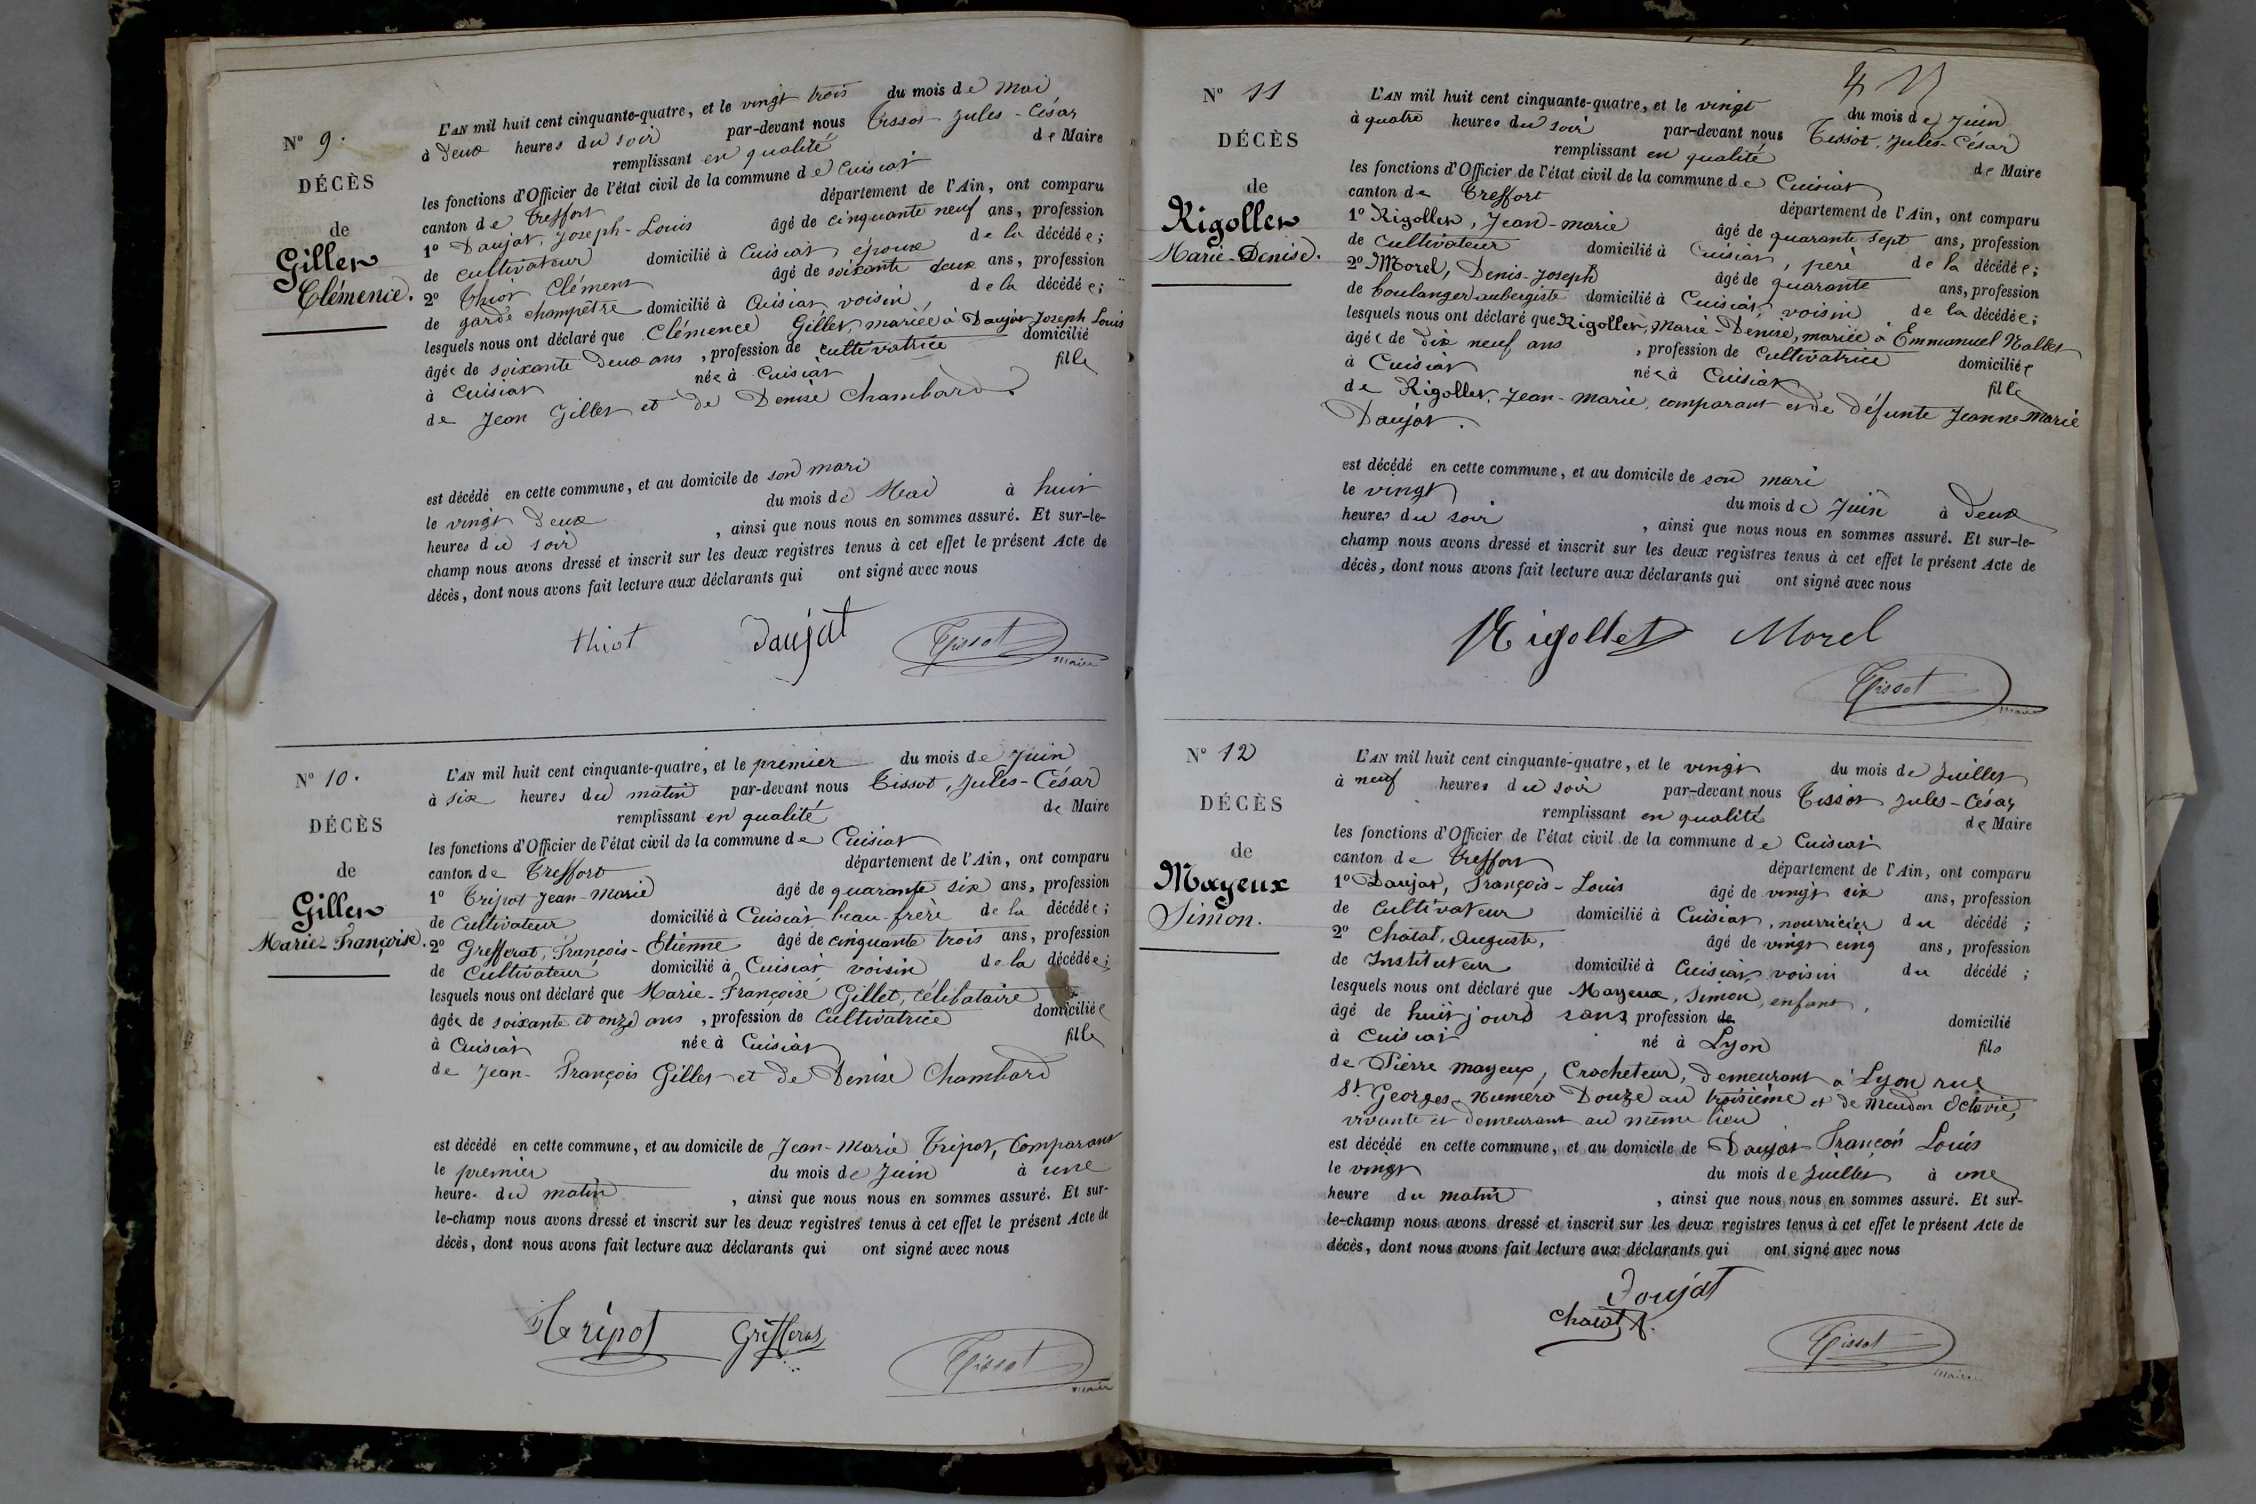 N° 9.
DÉCÈS
de
Gillet
Clémence.
L'AN mil huit cent cinquante-quatre, et le vingt trois du mois de Mai
à deux heures du soir par-devant nous Tissot Jules-César
remplissant en qualité de Maire
les fonctions d'Officier de l'état civil de la commune de Cuisiat
canton de Treffort département de l'Ain, ont comparu
1° Daujat, Joseph-Louis âgé de cinquante neuf ans, profession
de cultivateur domicilié à Cuisiat époux de la décédée;
2° Thiot Clément âgé de soixante deux ans, profession
de garde champêtre domicilié à Cuisiat voisin de la décédée;
lesquels nous ont déclaré que Clémence Gillet, mariée à Daujat Joseph Louis
âgée de soixante deux ans, profession de cultivatrice domicilié
à Cuisiat née à Cuisiat fille
de Jean Gillet et de Denise Chambard.
est décédé en cette commune, et au domicile de son mari
le vingt deux du mois de Mai à huit
heures du soir, ainsi que nous nous en sommes assuré. Et sur-le-
champ nous avons dressé et inscrit sur les deux registres tenus à cet effet le présent Acte de
décès, dont nous avons fait lecture aux déclarants qui ont signé avec nous
thiot Daujat Tissot
maire
N° 10.
DÉCÈS
de
Gillet
Marie-Françoise.
L'AN mil huit cent cinquante-quatre, et le premier du mois de Juin
à six heures du matin par-devant nous Tissot, Jules-César
remplissant en qualité de Maire
les fonctions d'Officier de l'état civil de la commune de Cuisiat
canton de Treffort département de l'Ain, ont comparu
1° Tripot Jean-Marie âgé de quarante six ans, profession
de Cultivateur domicilié à Cuisiat beau-frère de la décédée;
2° Grefferat, François-Etienne âgé de cinquante trois ans, profession
de Cultivateur domicilié à Cuisiat voisin de la décédée;
lesquels nous ont déclaré que Marie-Françoise Gillet, célibataire
âgée de soixante et onze ans, profession de Cultivatrice domiciliée
à Cuisiat née à Cuisiat fille
de Jean-François Gillet et de Denise Chambard
est décédé en cette commune, et au domicile de Jean-Marie Tripot, Comparant
le premier du mois de Juin à une
heure du matin, ainsi que nous nous en sommes assuré. Et sur-
le-champ nous avons dressé et inscrit sur les deux registres tenus à cet effet le présent Acte de
décès, dont nous avons fait lecture aux déclarants qui ont signé avec nous
Tripot Grefferat Tissot
maire
N° 11
DÉCÈS
de
Rigollet
Marie-Denise.
L'AN mil huit cent cinquante-quatre, et le vingt du mois de Juin
à quatre heures du soir par-devant nous Tissot, Jules-César
remplissant en qualité de Maire
les fonctions d'Officier de l'état civil de la commune de Cuisiat
canton de Treffort département de l'Ain, ont comparu
1° Rigollet, Jean-marie âgé de quarante sept ans, profession
de Cultivateur domicilié à Cuisiat, père de la décédée;
2° Morel, Denis-Joseph âgé de quarante ans, profession
de boulanger aubergiste domicilié à Cuisiat, voisin de la décédée;
lesquels nous ont déclaré que Rigollet, Marie-Denise, mariée à Emmanuel Nallet
âgée de dix neuf ans, profession de Cultivatrice domiciliée
à Cuisiat née à Cuisiat fille
de Rigollet, Jean-Marie, comparant et de défunte Jeanne Marie
Daujat.
est décédé en cette commune, et au domicile de son mari
le vingt du mois de Juin à deux
heures du soir, ainsi que nous nous en sommes assuré. Et sur-le-
champ nous avons dressé et inscrit sur les deux registres tenus à cet effet le présent Acte de
décès, dont nous avons fait lecture aux déclarants qui ont signé avec nous
Rigollet Morel
Tissot
maire
N° 12
DÉCÈS
de
Mayeux
Simon.
L'AN mil huit cent cinquante-quatre, et le vingt du mois de Juillet
à neuf heures du soir par-devant nous Tissot Jules-César
remplissant en qualité de Maire
les fonctions d'Officier de l'état civil de la commune de Cuisiat
canton de Treffort département de l'Ain, ont comparu
1° Daujat, François-Louis âgé de vingt six ans, profession
de Cultivateur domicilié à Cuisiat, nourricier du décédé;
2° Chatat, Auguste, âgé de vingt cinq ans, profession
de Instituteur domicilié à Cuisiat, voisin du décédé;
lesquels nous ont déclaré que Mayeux, Simon, enfant,
âgé de huit jours sans profession de domicilié
à Cuisiat né à Lyon fils
de Pierre mayeux, Crocheteur, demeurant à Lyon rue
St Georges Numéro Douze au troisième et de Meudon Octavie,
vivante et demeurant au même lieu
est décédé en cette commune, et au domicile de Daujat François Louis
le vingt du mois de Juillet à une
heure du matin, ainsi que nous nous en sommes assuré. Et sur-
le-champ nous avons dressé et inscrit sur les deux registres tenus à cet effet le présent Acte de
décès, dont nous avons fait lecture aux déclarants qui ont signé avec nous
Doujat
Chatat A.
Tissot
maire